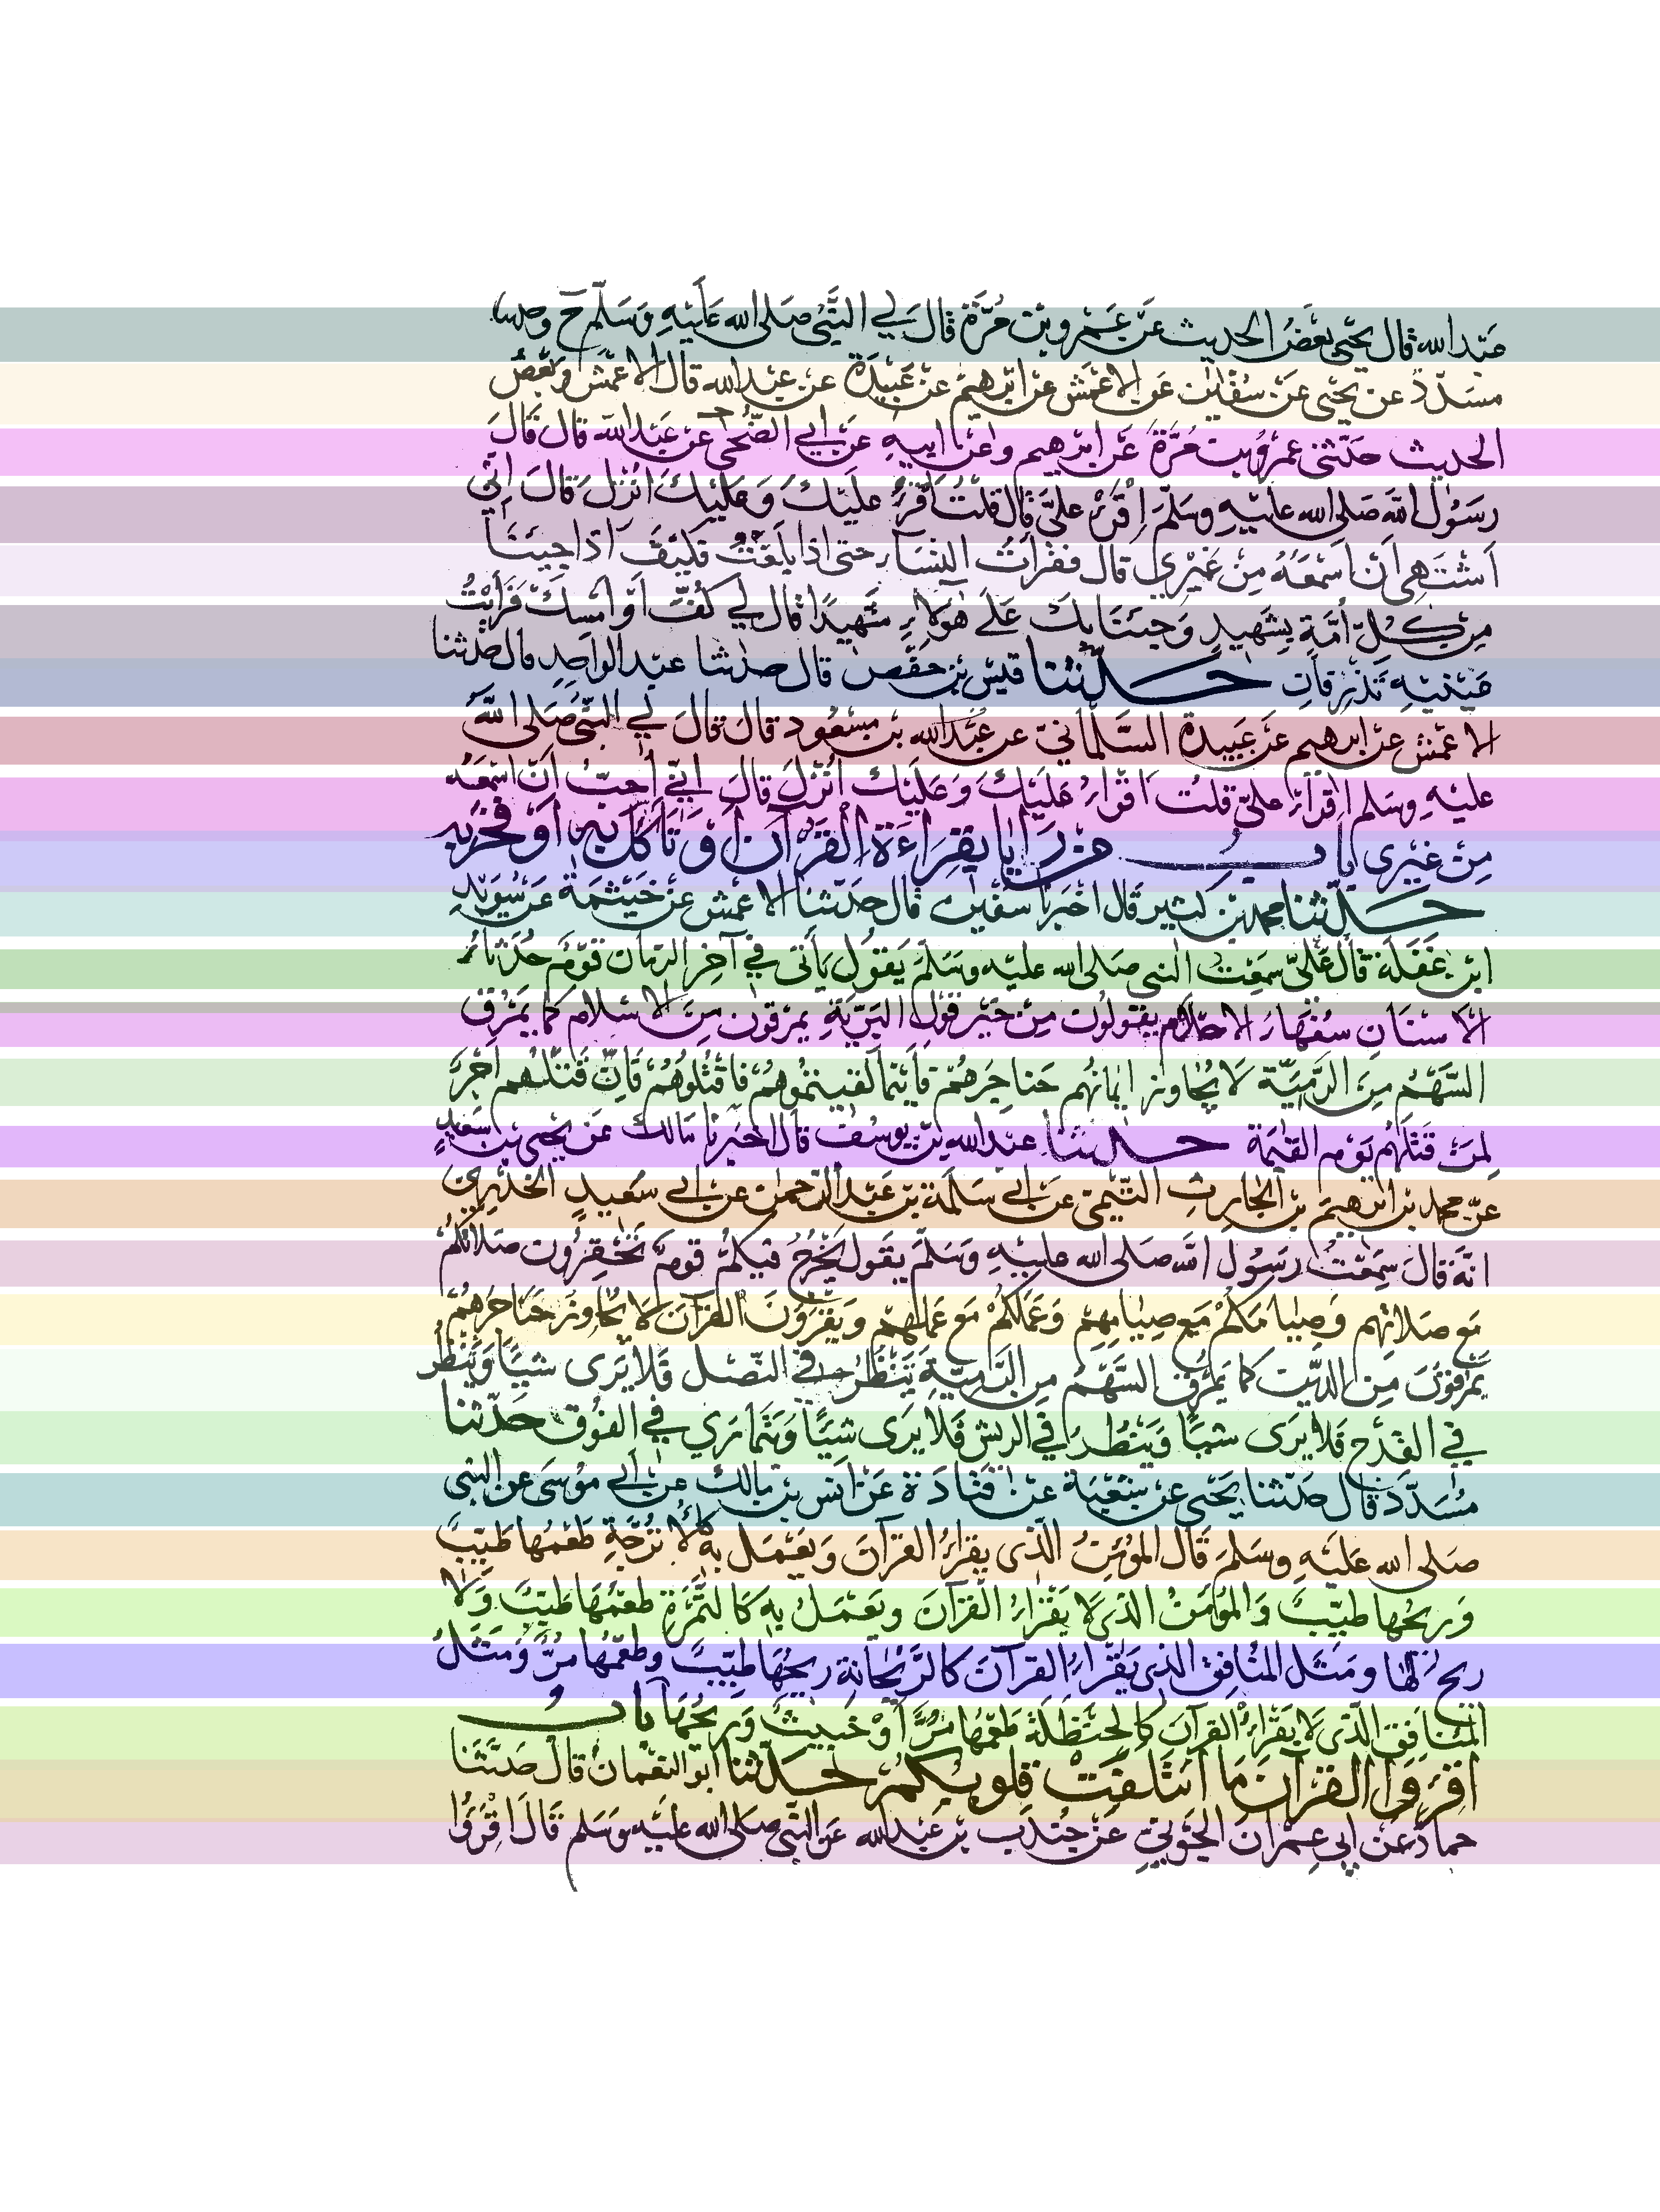 عبد الله قال يحيى بعض الحديث عن عمرو بن مرة قال لي النبي صلى الله عليه وسلم ح وحدثنا
مسدد عن يحيى عن سفين عن الاعمش عن ابرهيم عن عبيدة عن عبد الله قال الاعمش وبعض
الحديث حدثني عمرو بن مرة عن ابرهيم وعن ابيه عن ابي الضحى عن عبد الله قال قال
رسول الله صلى الله عليه وسلم اقرء علي قال قلت اقرء عليك وعليك انزل قال اني
اشتهي ان اسمعه من غيري قال فقرأت النساء حتى اذا بلغت فكيف اذا جيئنا
من كل امة بشهيد وجيئنا بك على هؤلاء شهيدا قال لي كف او امسك فرايت
عينيه تذرفان حدثنا قيس بن حفص قال حدثنا عبد الواحد قال حدثنا
الاعمش عن ابرهيم عن عبيدة السلماني عن عبد الله بن مسعود قال قال لي النبي صلى الله
عليه وسلم اقرأ علي قلت اقرأ عليك وعليك انزل قال اني أحب ان اسمعه
من غيري باب من رايا بقراءة القرآن او تأكل به او فخر به
حدثنا محمد بن كثير قال اخبرنا سفين قال حدثنا الاعمش عن خيثمة عن سويد
ابن غفلة قال علي سمعت النبي صلى الله عليه وسلم يقول يأتي في آخر الزمان قوم حدثاء
الاسنان سفهاء الاحلام يقولون من خير قول البرية يمرقون من الاسلام كما يمرق
السهم من الرمية لا يجاوز ايمانهم حناجرهم فأينما لقيتموهم فاقتلوهم فان قتلهم اجر
لمن قتلهم يوم القيمة حدثنا عبد الله بن يوسف قال اخبرنا مالك عن يحيى بن سعيد
عن محمد بن ابرهيم بن الحارث التيمي عن ابي سلمة بن عبد الرحمن عن ابي سعيد الخدري
انه قال سمعت رسول الله صلى الله عليه وسلم يقول يخرج فيكم قوم تحقرون صلاتكم
مع صلاتهم وصيامكم مع صيامهم وعملكم مع عملهم ويقرؤن القرآن لا يجاوز حناجرهم
يمرقون من الدين كما يمرق السهم من الرمية ينظر في النصل فلا يرى شيا وينظر
في القدح فلا يرى شيا وينظر في الريش فلا يرى شيا ويتمارى في الفوق حدثنا
مسدد قال حدثنا يحيى عن شعبة عن قتادة عن انس بن مالك عن ابي موسى عن النبي
صلى الله عليه وسلم قال المؤمن الذى يقرأ القرآن ويعمل به كالاترجة طعمها طيب
وريحها طيب والمؤمن الذى لا يقرأ القرآن ويعمل به كالتمرة طعمها طيب ولا
ريح لها ومثل المنافق الذى يقرأ القرآن كالريحانة ريحها طيب وطعمها مر ومثل
المنافق الذى لا يقرأ القرآن كالحنظلة طعمها مر او خبيث وريحها باب
اقرؤا القرآن ما ائتلفت قلوبكم حدثنا ابو النعمان قال حدثنا
حماد عن ابي عمران الجوني عن جندب بن عبد الله عن النبي صلى الله عليه وسلم قال اقرؤا